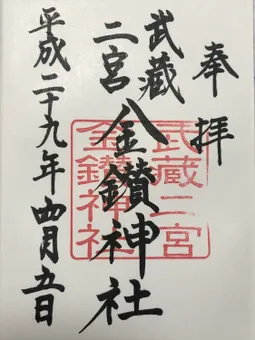 奉拝
武蔵
二宮
金鑚神社
平成二十九年四月五日
武蔵二宮
金鑚神社